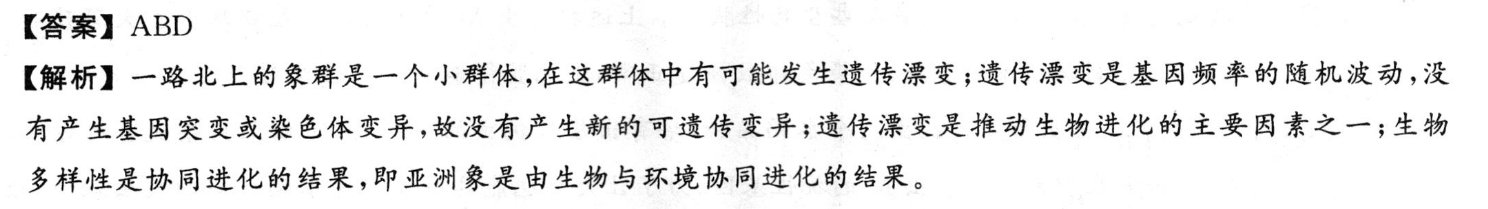 【答案】ABD
【解析】一路北上的象群是一个小群体,在这群体中有可能发生遗传漂变;遗传漂变是基因频率的随机波动,没
有产生基因突变或染色体变异,故没有产生新的可遗传变异;遗传漂变是推动生物进化的主要因素之一;生物
多样性是协同进化的结果,即亚洲象是由生物与环境协同进化的结果。